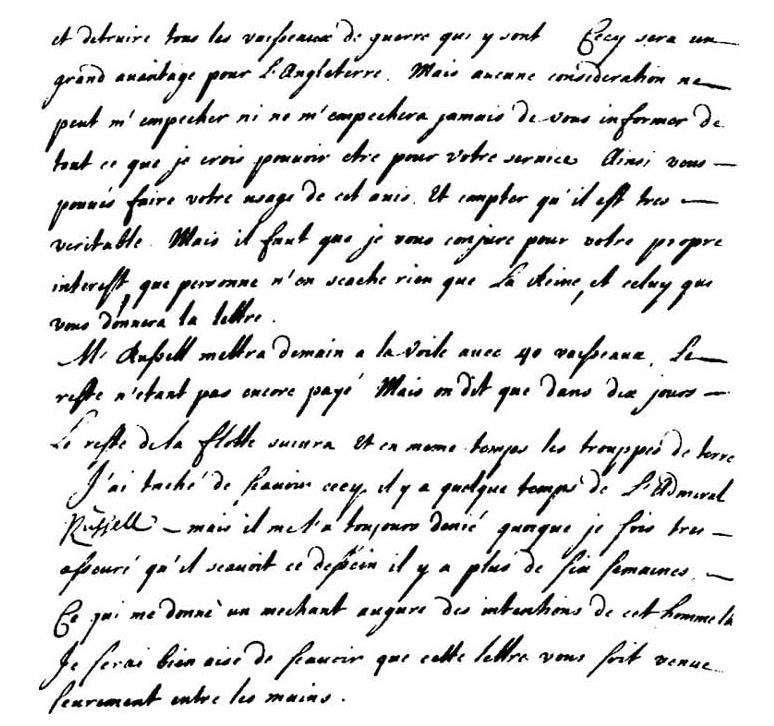 et detruire tous les vaisseaux de guerre qui y sont Cecy sera un
grand avantage pour L'Angleterre. Mais aucune consideration ne
peut m'empecher ni ne m'empechera jamais de vous informer de
tout ce que je crois pouvoir etre pour votre service Ainsi vous
pouvés faire votre usage de cet avis. Et compter qu'il est tres
veritable. Mais il faut que je vous conjure pour votre propre
interest, que personne n'en scache rien que La Reine, et celuy que
vous donnera la lettre.
Mr Russell mettra demain a la voile avec 40 vaisseaux, Le
reste n'etant pas encore payé Mais on dit que dans dix jours
Le reste de la flotte suivra Et en meme temps les trouppes de terre
J'ai taché de scavoir cecy il y a quelque temps de L'Admiral
Russell – mais il me l'a toujours denié quoique je sois tres
assuré qu'il scavoit ce dessein il y a plus de six semaines.
Ce qui me donne un mechant augure des intentions de cet homme là
Je serai bien aise de scavoir que cette lettre vous soit venue
seurement entre les mains.